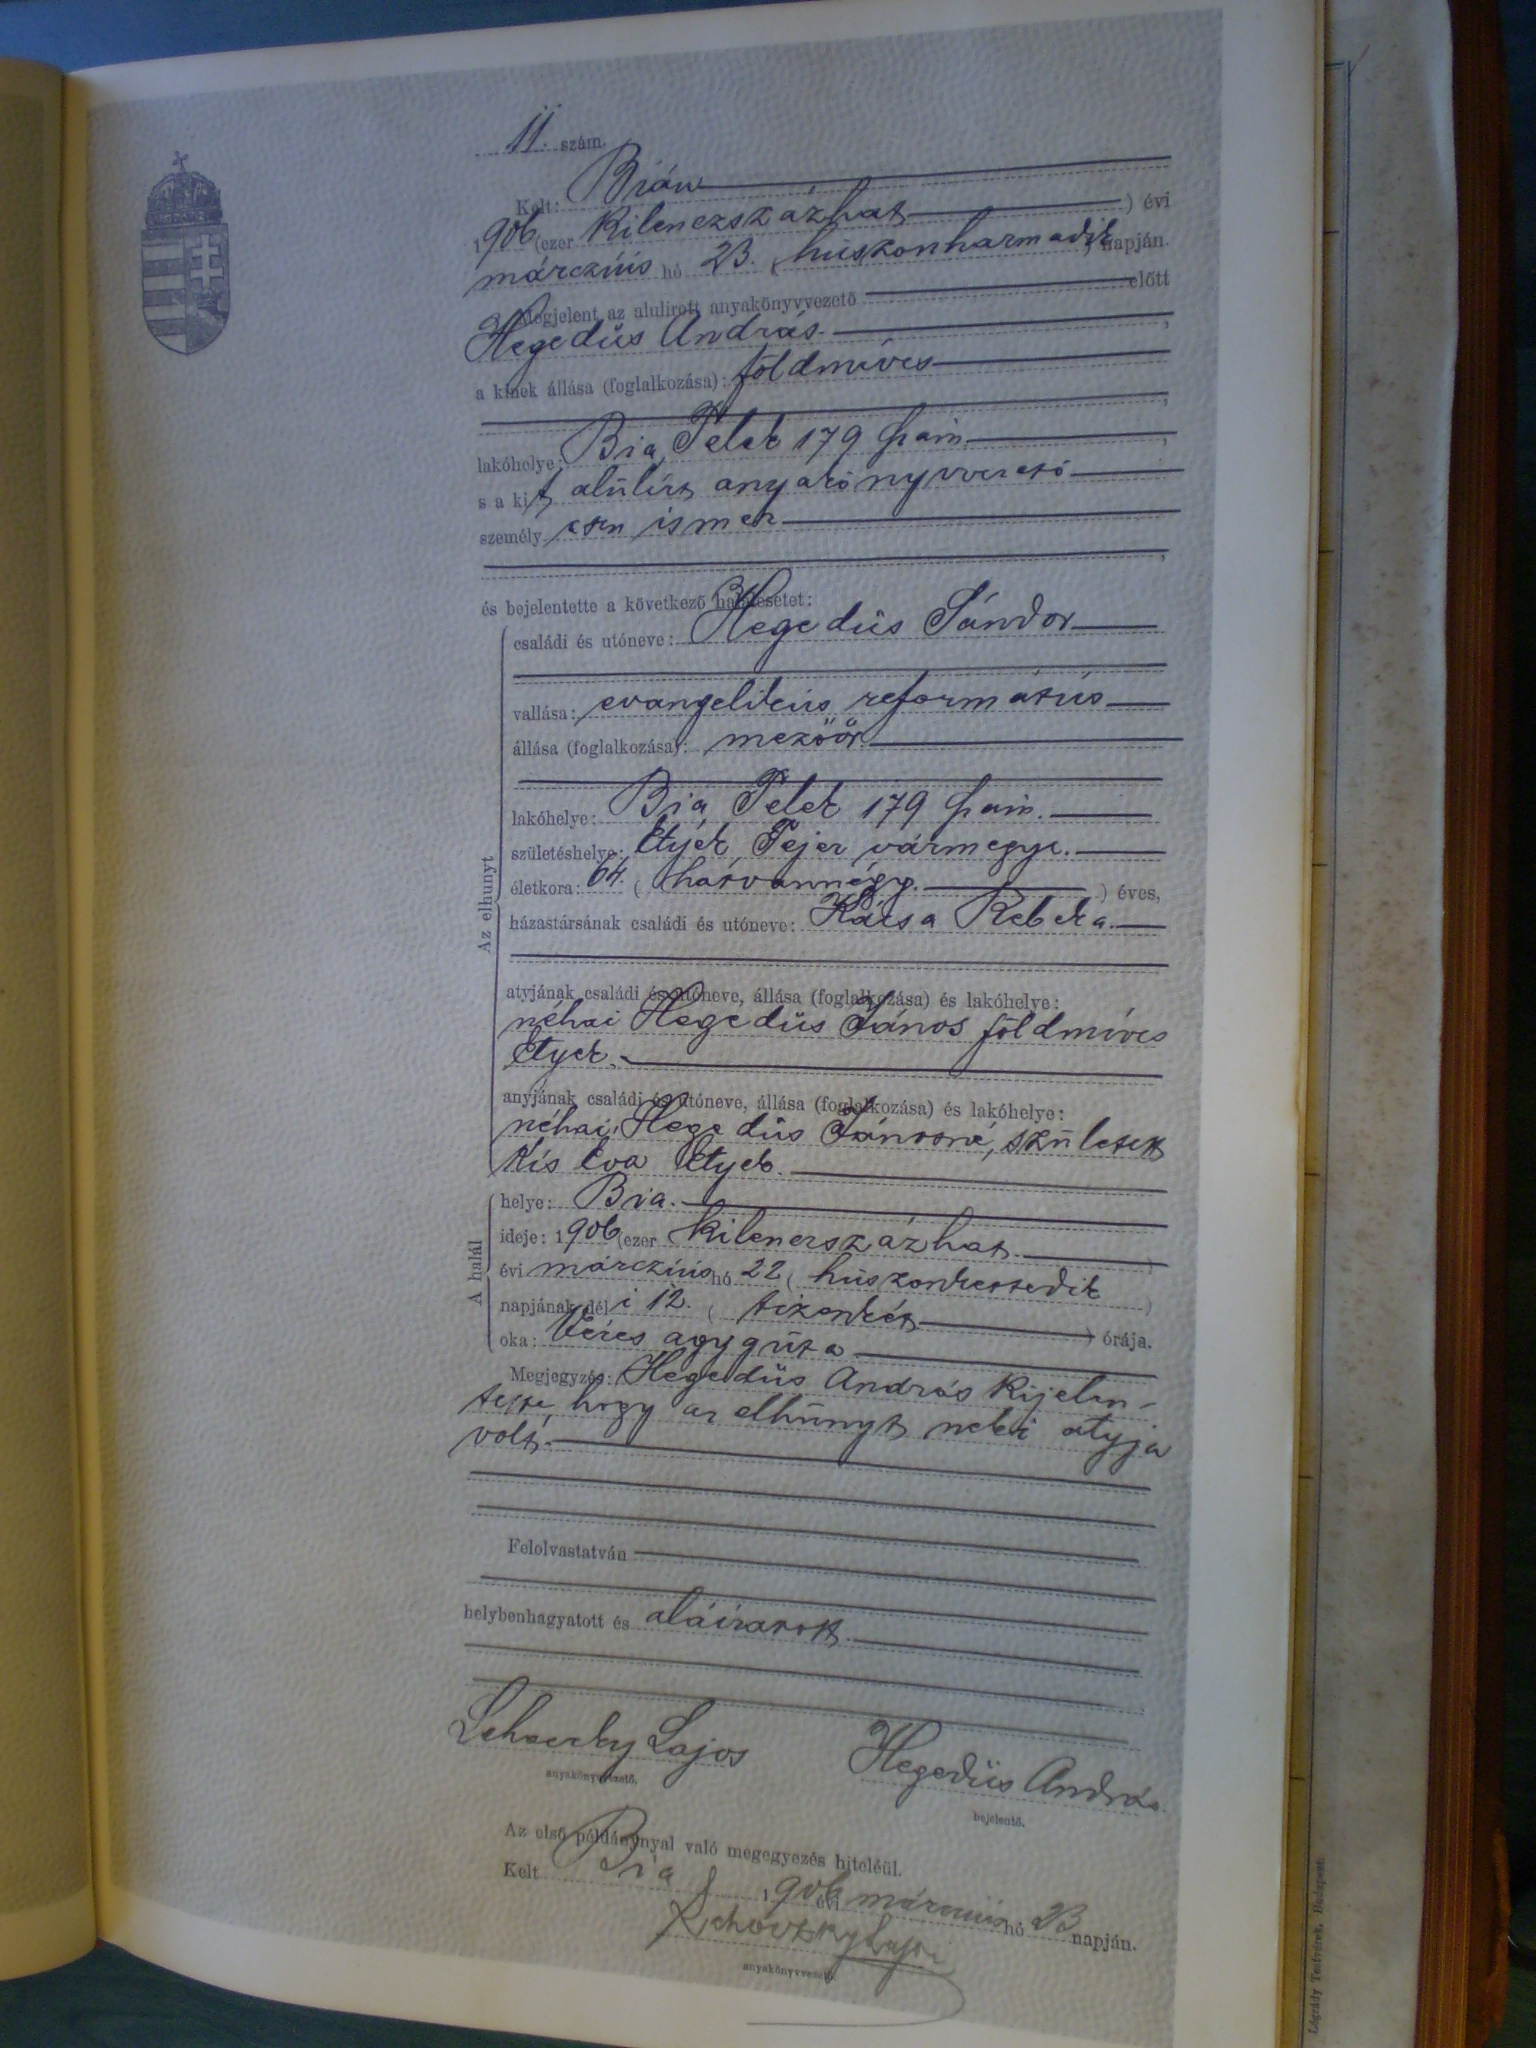 11. szám.
Kelt: Bián
1906 (ezer kilenczszázhat ) évi
márczius hó 23. ( huszonharmadik ) napján.
Megjelent az alulirott anyakönyvvezető előtt
Hegedüs András ,
a kinek állása (foglalkozása): földmíves
,
lakóhelye: Bia, Telek 179 szám ,
s a kit alulírt anyakönyvvezető
személyesen ismer
,
és bejelentette a következő halálesetet:
Az elhunyt
családi és utóneve: Hegedüs Sándor
vallása: evangelikus református
állása (foglalkozása): mezőőr
lakóhelye: Bia, Telek 179 szám.
születéshelye: Etyek, Fejer vármegye.
életkora: 64. ( hatvannégy. ) éves,
házastársának családi és utóneve: Kácsa Rebeka.
atyjának családi és utóneve, állása (foglalkozása) és lakóhelye:
néhai Hegedüs János földmíves
Etyek.
anyjának családi és utóneve, állása (foglalkozása) és lakóhelye:
néhai Hegedüs Jánosné, született
Kis Éva Etyek.
A halál
helye: Bia.
ideje: 1906 (ezer kilenczszázhat )
évi márczius hó 22 ( huszonkettedik )
napjának déli 12. ( tizenkét ) órája.
oka: Véres agyguta
Megjegyzés: Hegedüs András kijelen-
tette, hogy az elhunyt neki atyja
volt.
Felolvastatván
helybenhagyatott és aláíratott.
Lajos Hegedüs András
anyakönyvvezető. bejelentő.
Az első példánynyal való megegyezés hiteléül.
Kelt Bia, 1906 évi márczius hó 23 napján.
Lajos
anyakönyvvezető.
Légrády Testvérek, Budapest.